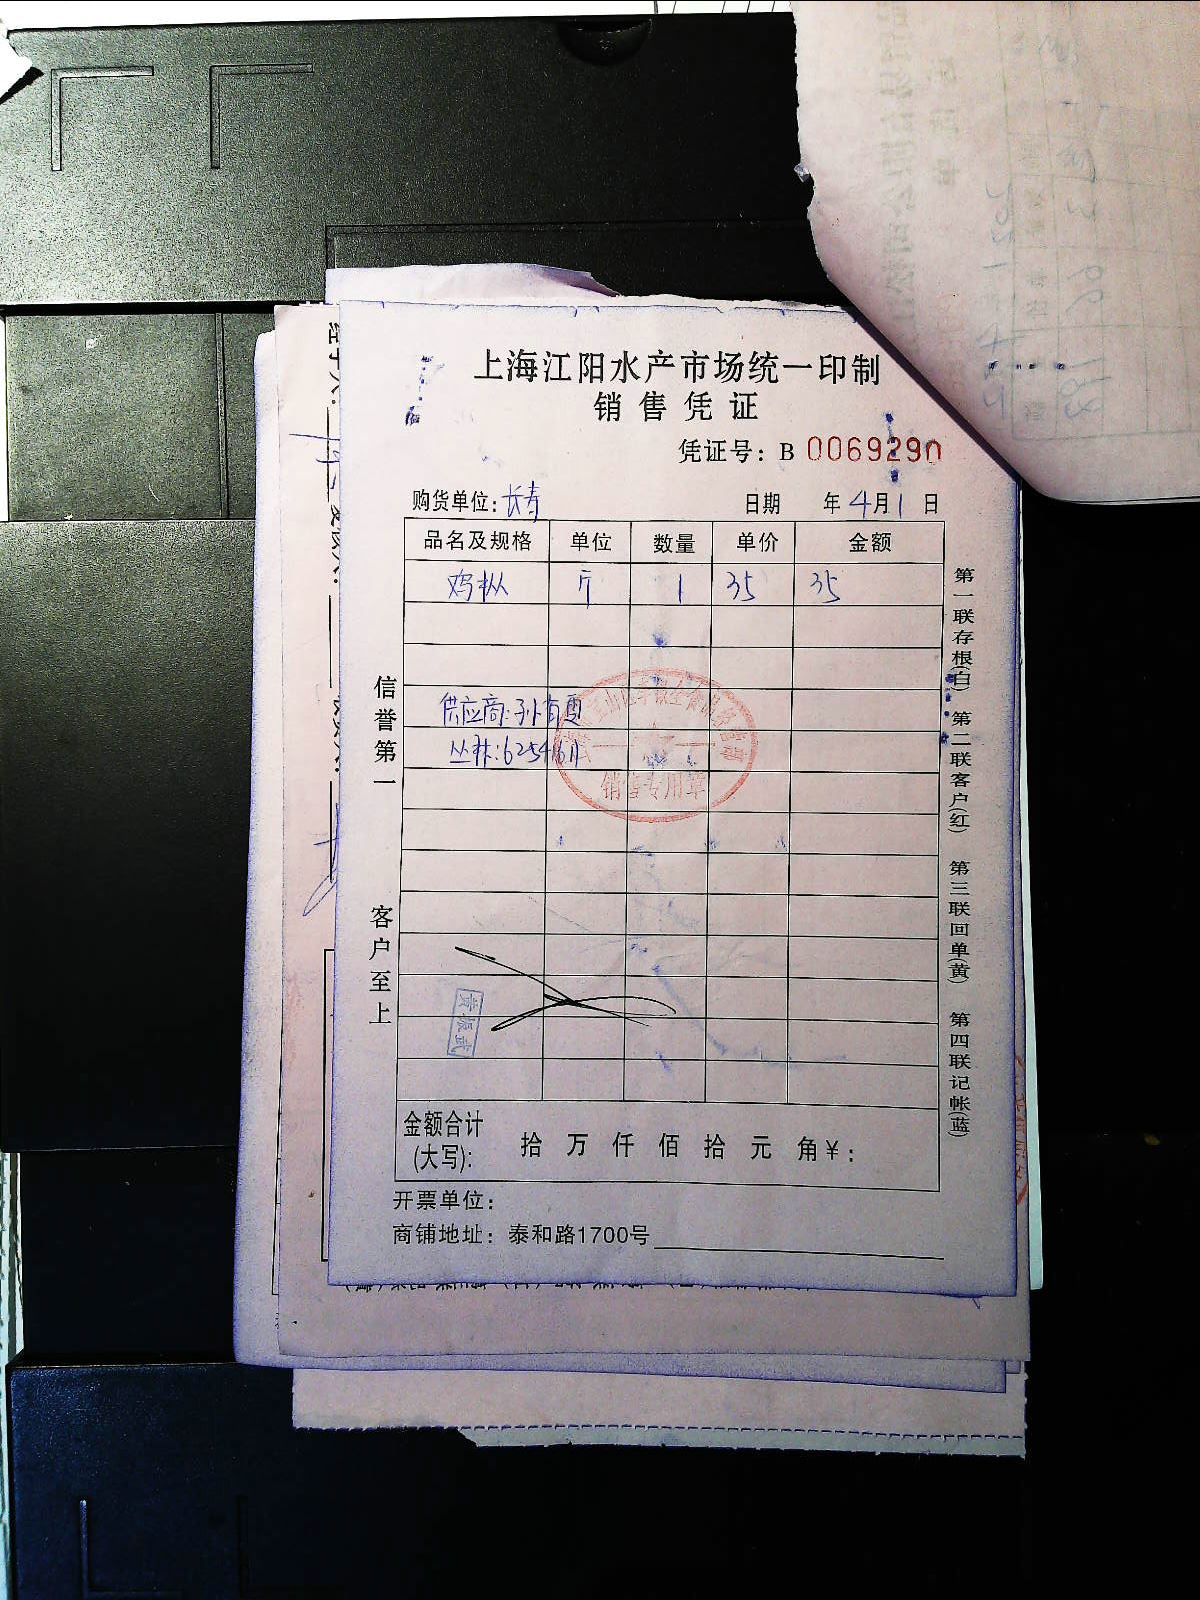 上海江阳水产市场统一印制
销售凭证
凭证号：B 0069290
购货单位:长寿 日期 年4月1日
品名及规格 单位 数量 单价 金额
鸡枞 斤 1 35 35
供应商:孙有
丛林:6254
销售专用章
黄振武
金额合计(大写): 拾 万 仟 佰 拾 元 角￥:
开票单位:
商铺地址: 泰和路1700号
信誉第一
客户至上
第一联存根(白) 第二联客户(红) 第三联回单(黄) 第四联记帐(蓝)